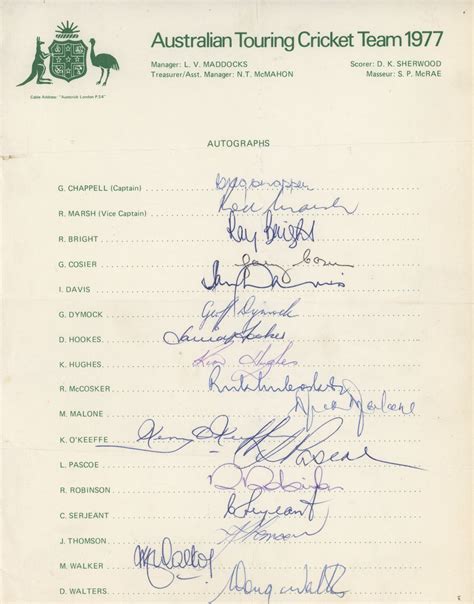 Australian Touring Cricket Team 1977
Manager: L. V. MADDOCKS
Scorer: D. K. SHERWOOD
Treasurer/Asst. Manager: N.T. McMAHON
Masseur: S. P. McRAE
Cable Address: "Austcrick London P.S4"
AUTOGRAPHS
G. CHAPPELL (Captain)
R. MARSH (Vice Captain) Rod Marsh
R. BRIGHT Ray Bright
G. COSIER Gary Cosier
I. DAVIS Ian Davis
G. DYMOCK Geoff Dymock
D. HOOKES
K. HUGHES Kim Hughes
R. McCOSKER
M. MALONE Mick Malone
K. O'KEEFFE Kerry O'Keeffe
L. PASCOE L S Pascoe
R. ROBINSON R D Robinson
C. SERJEANT C Serjeant
J. THOMSON J Thomson
M. WALKER M Walker
D. WALTERS Doug Walters